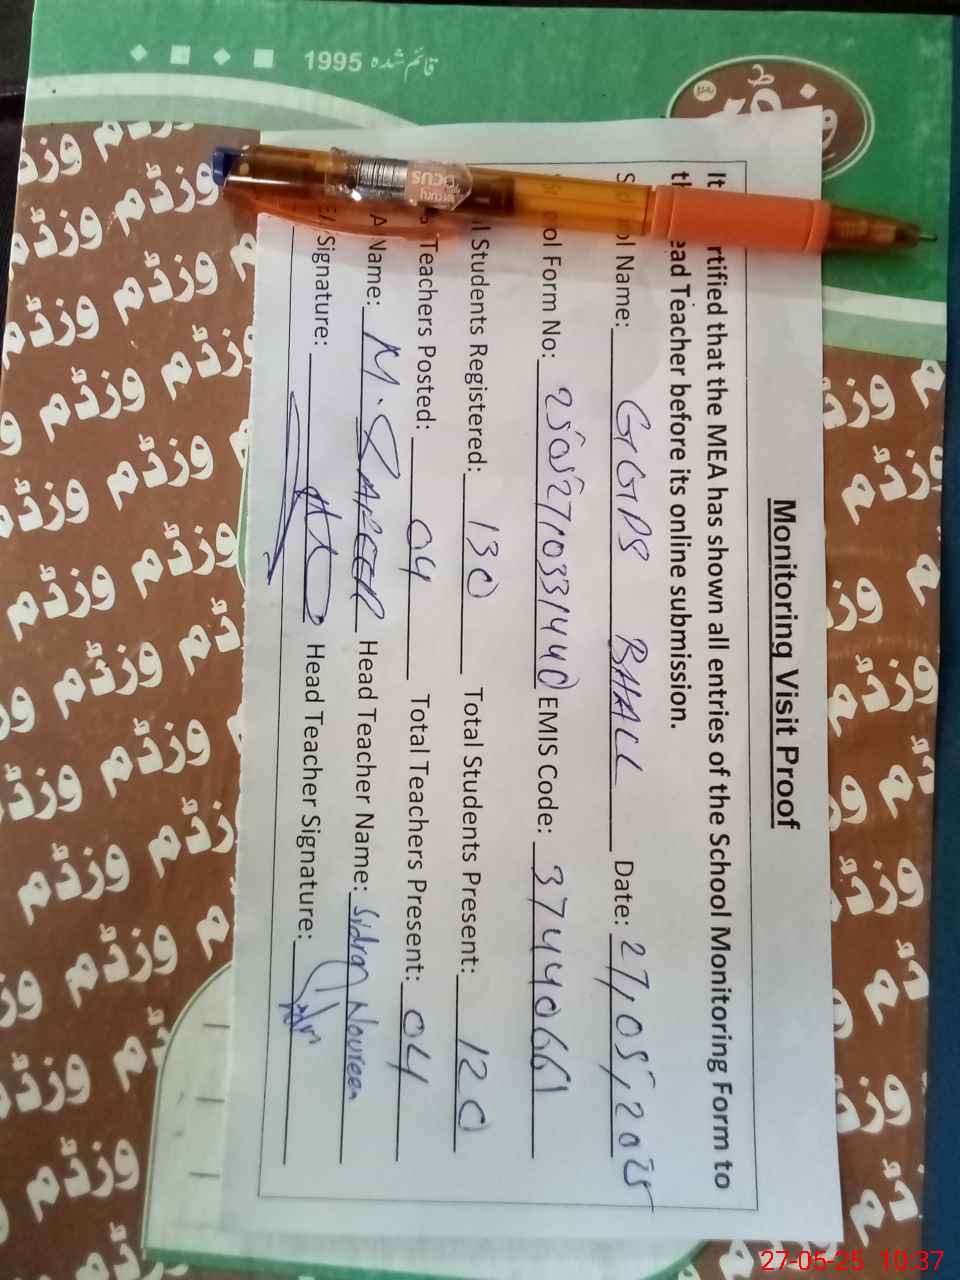 قائم شدہ 1995
Monitoring Visit Proof
It rtified that the MEA has shown all entries of the School Monitoring Form to
th ead Teacher before its online submission.
Sch ol Name: GGPS BHALL Date: 27,05,2025
ool Form No: 25052710331440 EMIS Code: 37440661
l Students Registered: 130 Total Students Present: 120
Teachers Posted: 04 Total Teachers Present: 04
A Name: M. SAFEER Head Teacher Name: Sidrah Noureen
EA Signature: Head Teacher Signature:
وزڈم
27-05-25 10:37